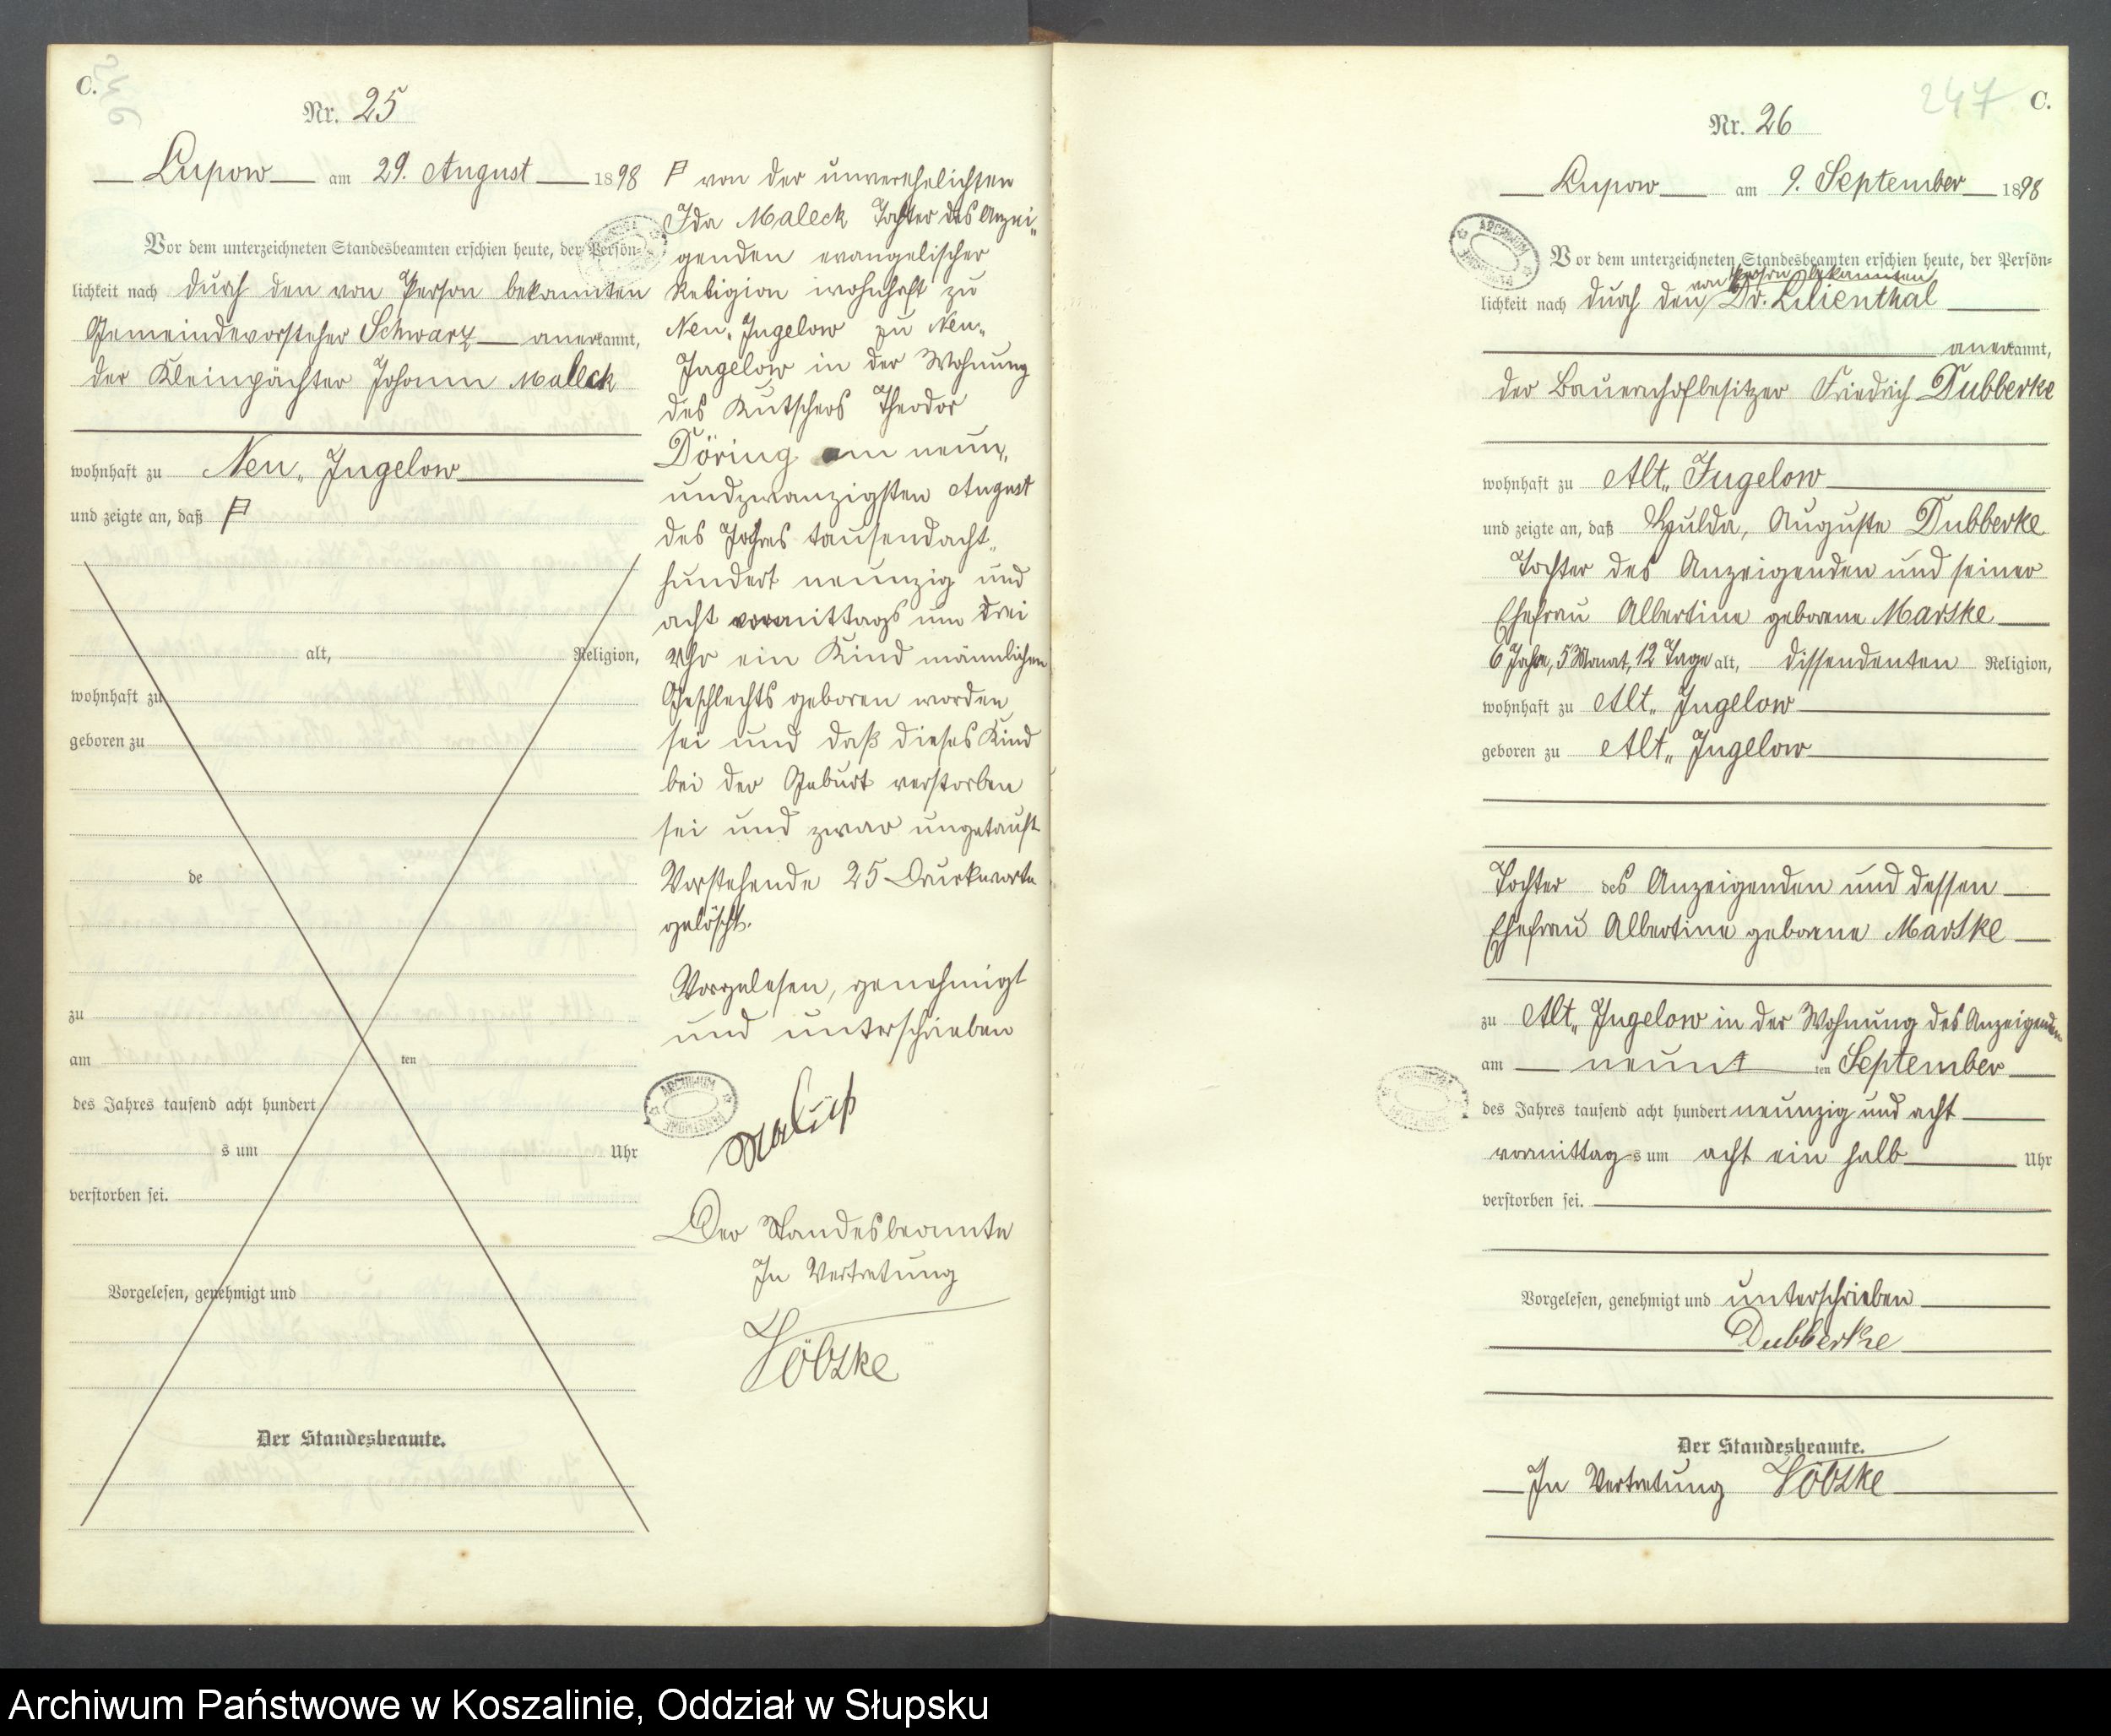 C.
246
Nr. 25
Lupow am 29. August 1898
Vor dem unterzeichneten Standesbeamten erschien heute, der Persön-
lichkeit nach durch den von Person bekannten
Gemeindevorsteher Schwarz anerkannt,
der Kleinpächter Johann Maleck
wohnhaft zu Neu„ Jugelow
und zeigte an, daß
alt, Religion,
wohnhaft zu
geboren zu
de
zu
am ten
des Jahres tausend acht hundert
s um Uhr
verstorben sei.
Vorgelesen, genehmigt und
Der Standesbeamte.
von der unverehelichten
Ida Maleck Tochter des Anzei„
genden evangelischer
Religion wohnhaft zu
Neu„ Jugelow zu Neu„
Jugelow in der Wohnung
des Kutschers Theodor
Döring am neun„
undzwanzigsten August
des Jahres tausendacht„
hundert neunzig und
acht vormittags um drei
Uhr ein Kind männlichen
Geschlechts geboren worden
sei und daß dieses Kind
bei der Geburt verstorben
sei und zwar ungetauft
Vorstehende 25 Druckworte
gelöscht.
Vorgelesen, genehmigt
und unterschrieben
ARCHIWUM
Der Standesbeamte
In Vertretung
247
C.
Nr. 26
Lupow am 9. September 1898
ARCHIWUM
Vor dem unterzeichneten Standesbeamten erschien heute, der Persön-
von Person bekannten
lichkeit nach durch den Dr. Lilienthal
anerkannt,
der Bauernhofbesitzer Friedrich Dubberke
wohnhaft zu Alt„ Jugelow
und zeigte an, daß Hulda, Auguste Dubberke
Tochter des Anzeigenden und seiner
Ehefrau Albertine geborene Marske
6 Jahre, 5 Monat, 12 Tage alt, dissendenten Religion,
wohnhaft zu Alt„ Jugelow
geboren zu Alt„ Jugelow
Tochter des Anzeigenden und dessen
Ehefrau Albertine geborene Marske
zu Alt„ Jugelow in der Wohnung des Anzeigenden
am neunt ten September
des Jahres tausend acht hundert neunzig und acht
vormittag s um acht ein halb Uhr
verstorben sei.
Vorgelesen, genehmigt und unterschrieben
Dubberke
Der Standesbeamte.
In Vertretung
Archiwum Państwowe w Koszalinie, Oddział w Słupsku